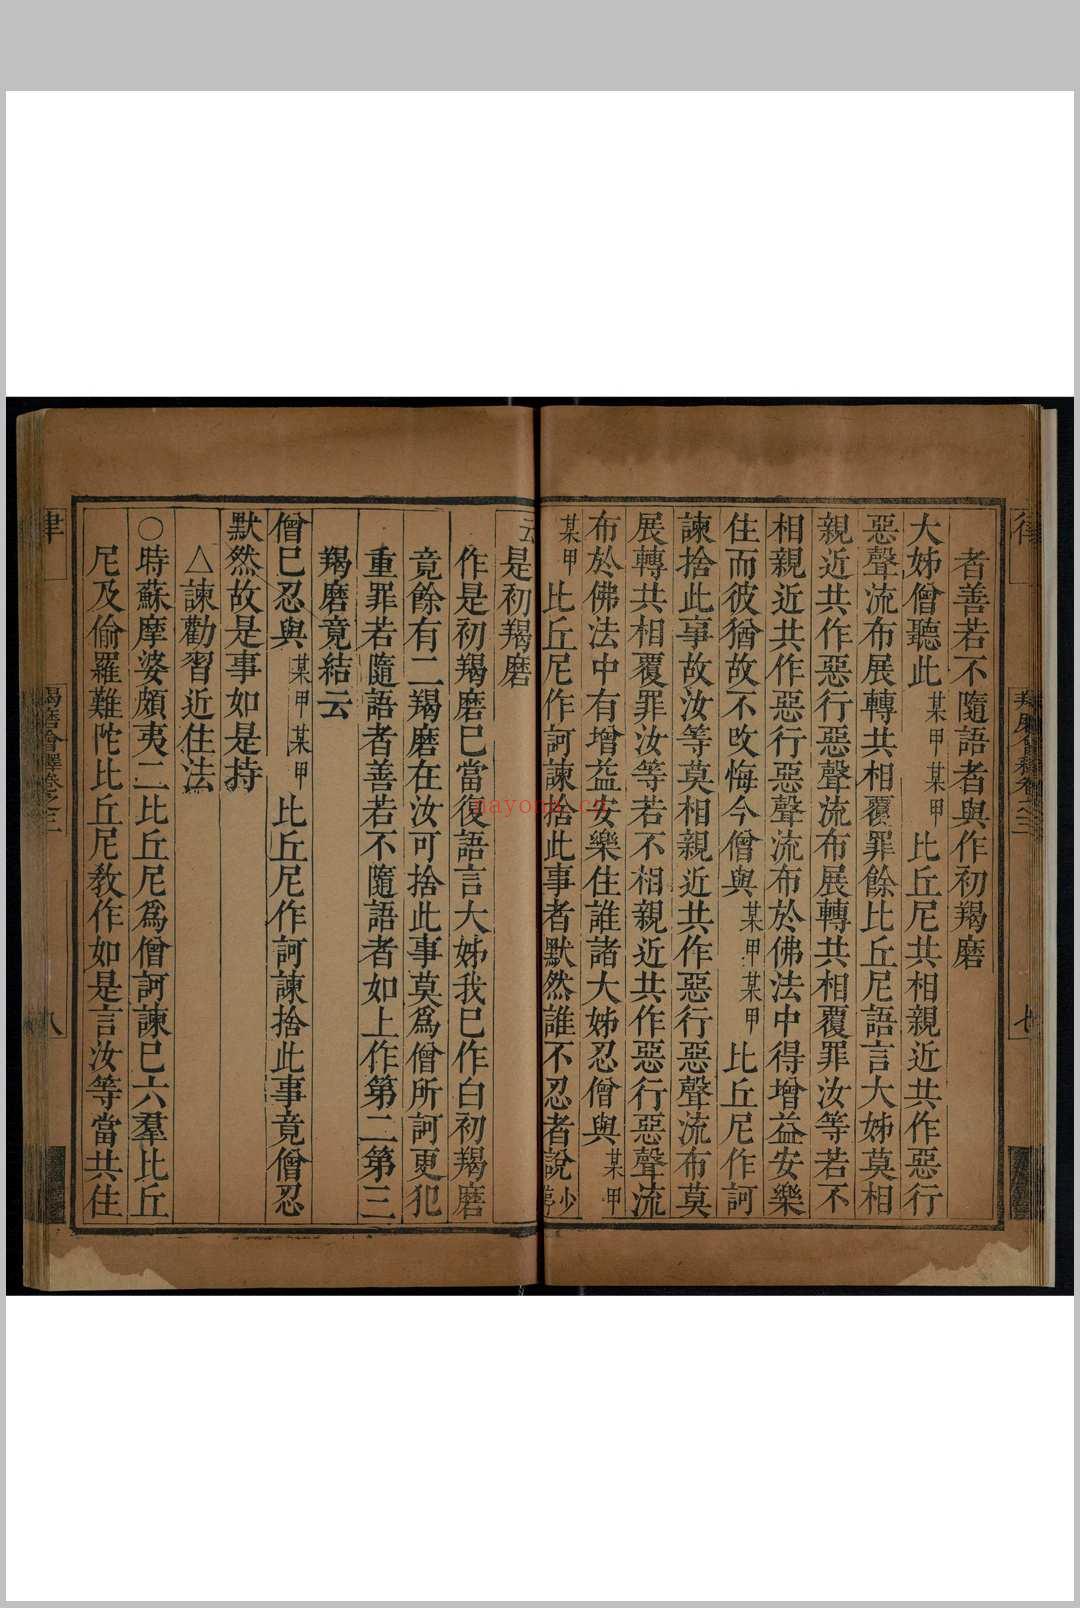 者善若不隨語者與作初羯磨
大姊僧聽此某甲某甲比丘尼共相親近共作惡行
惡聲流布展轉共相覆罪餘比丘尼語言大姊莫相
親近共作惡行惡聲流布展轉共相覆罪汝等若不
相親近共作惡行惡聲流布於佛法中得增益安樂
住而彼猶故不攺悔今僧與某甲某甲比丘尼作訶
諫捨此事故汝等莫相親近共作惡行惡聲流布莫
展轉共相覆罪汝等若不相親近共作惡行惡聲流
布於佛法中有增益安樂住誰諸大姊忍僧與某甲
某甲比丘尼作訶諫捨此事者默然誰不忍者說少停
云是初羯磨
作是初羯磨巳當復語言大姊我巳作白初羯磨
竟餘有二羯磨在汝可捨此事莫爲僧所訶更犯
重罪若隨語者善若不隨語者如上作第二第三
羯磨竟結云
僧巳忍與某甲某甲比丘尼作訶諫捨此事竟僧忍
默然故是事如是持
△諫勸習近住法
○時蘇摩婆頗夷二比丘尼爲僧訶諫巳六羣比丘
尼及偷羅難陀比丘尼教作如是言汝等當共住
律
羯磨會釋卷之二
八
nayona.cn